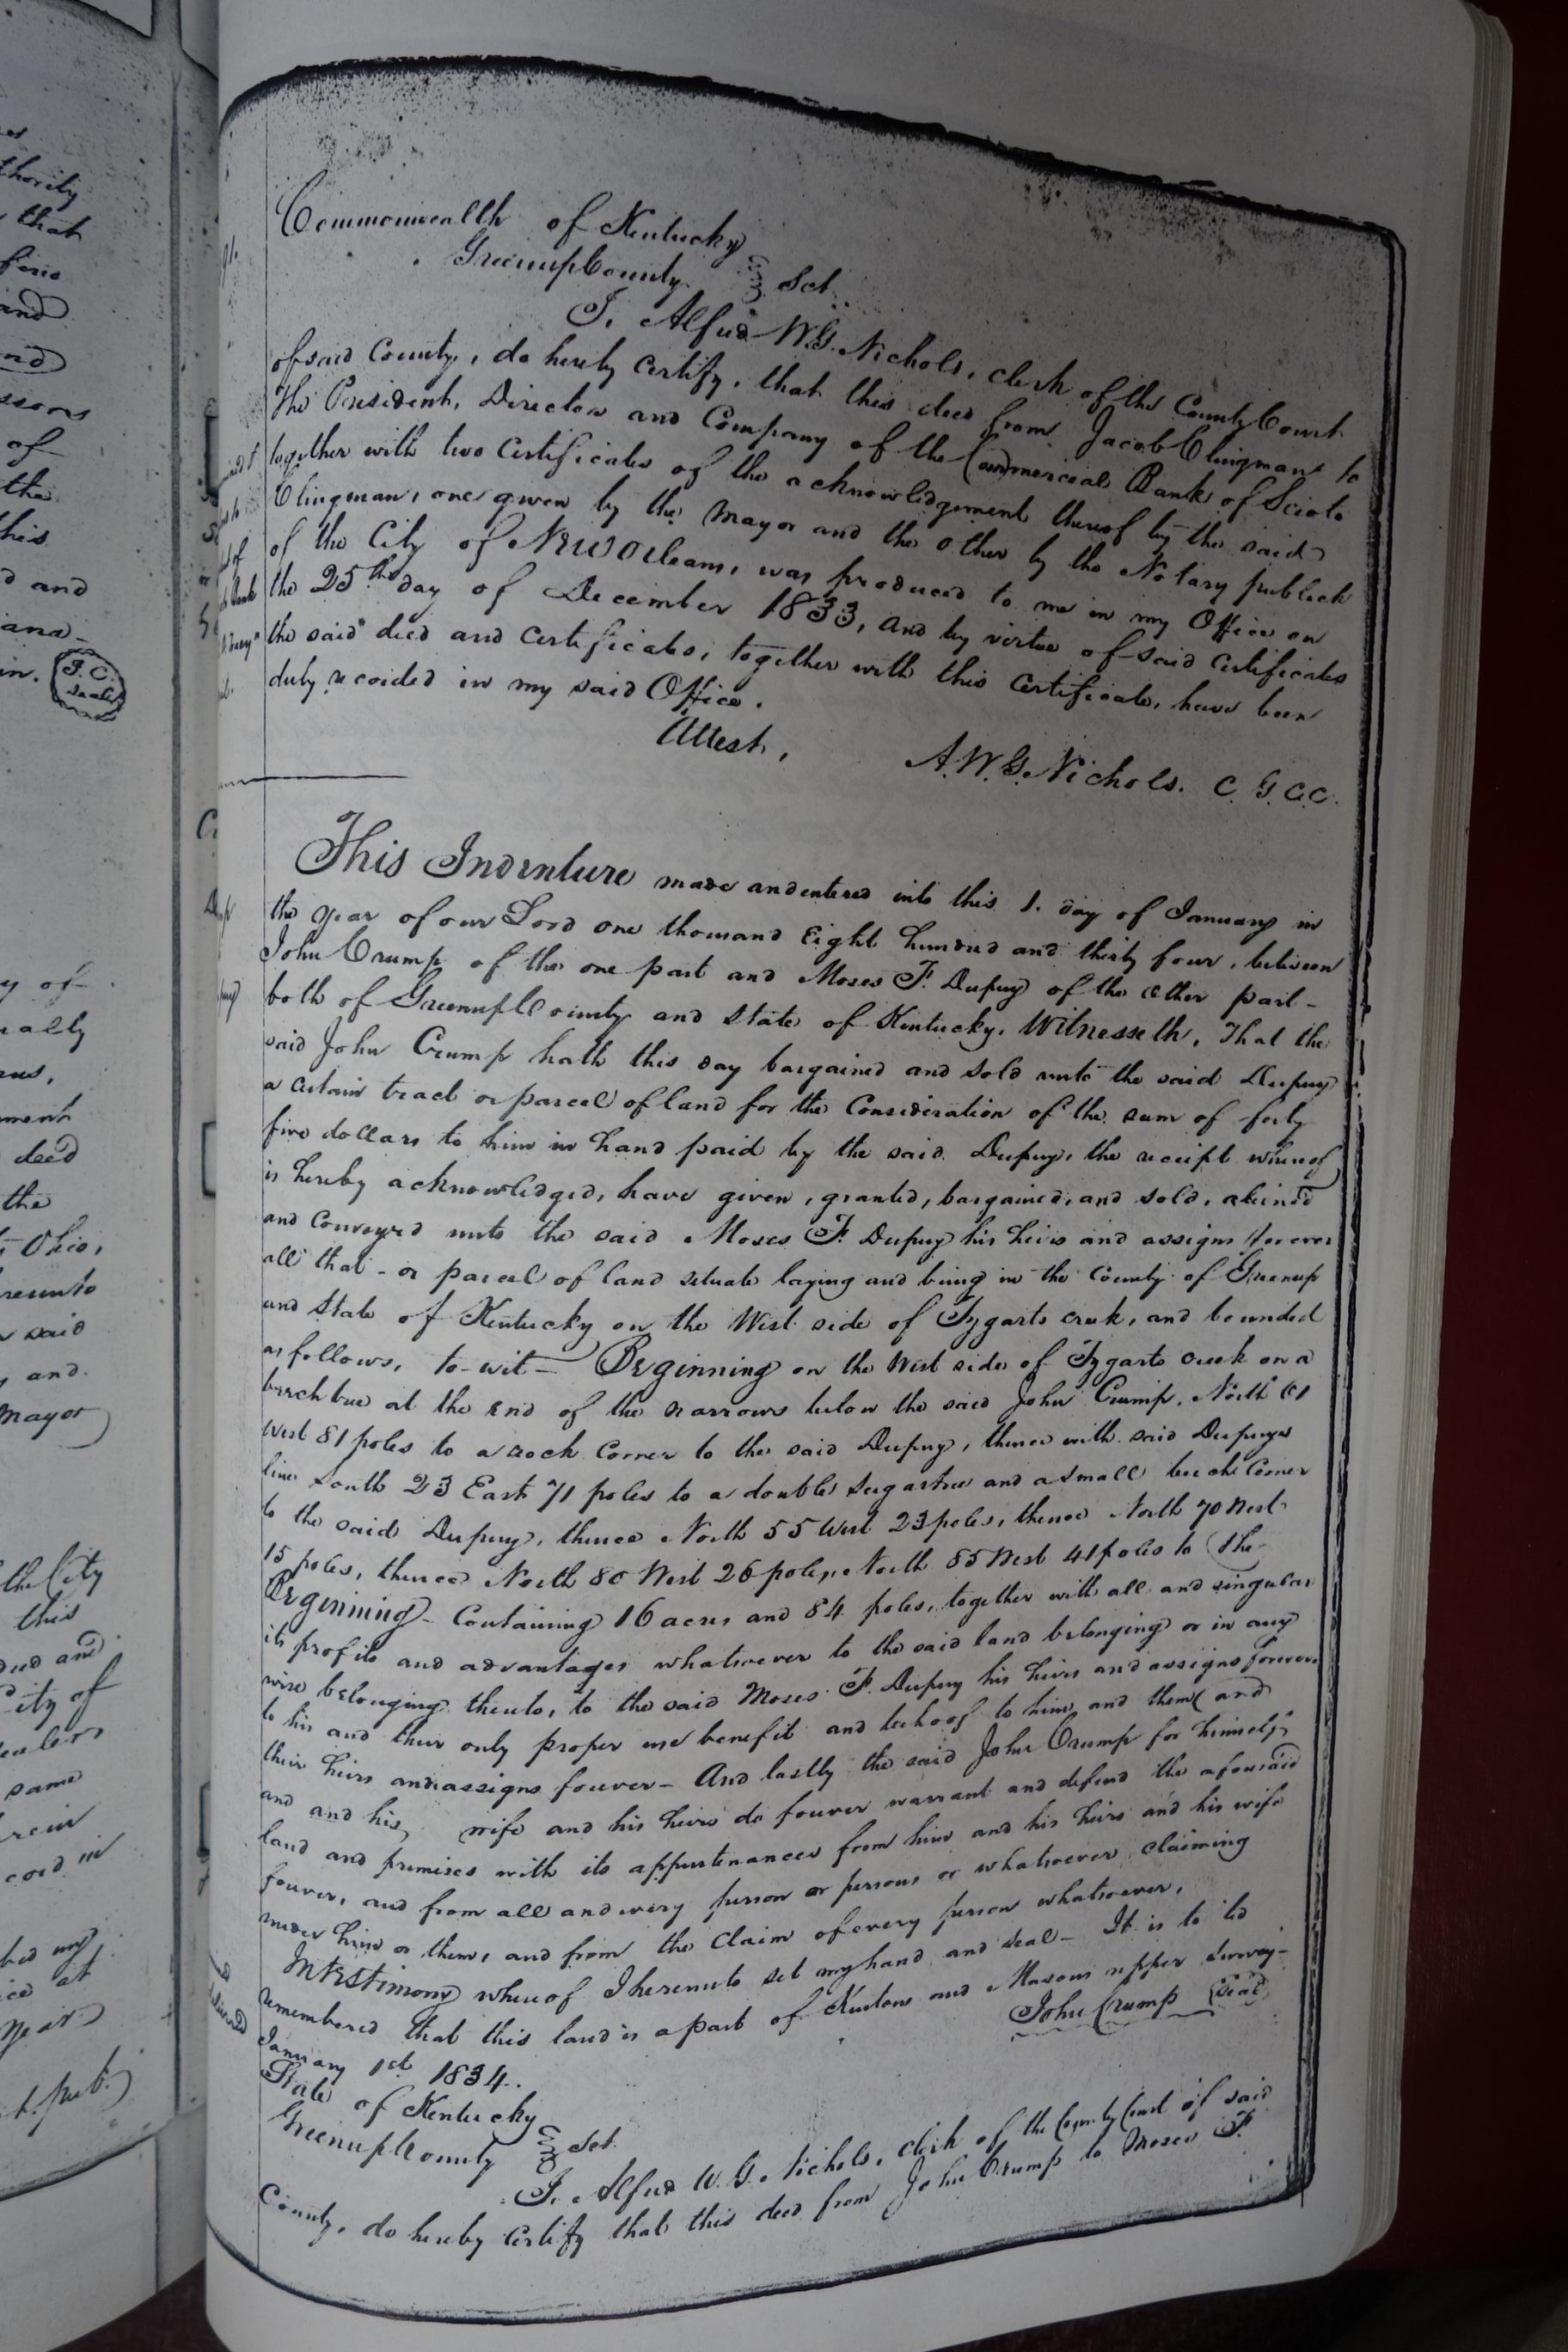 Commonwealth of Kentucky
Greenup County Sct.
I, Alfred W. G. Nichols, clerk of the County Court
of said County, do hereby certify, that this deed from Jacob Clingman to
the President, Directors and Company of the Commercial Bank of Scioto
together with two certificates of the acknowledgement thereof by the said
Clingman, one given by the Mayor and the other by the Notary publick
of the City of New Orleans, was produced to me in my Office on
the 25th day of December 1833, and by virtue of said certificates
the said deed and certificates, together with this certificate, have been
duly recorded in my said Office.
Attest, A. W. G. Nichols. C. G. C. C.
This Indenture made and entered into this 1. day of January in
the year of our Lord one thousand Eight hundred and thirty four, between
John Crump of the one part and Moses F. Dupuy of the other part -
both of Greenup County and State of Kentucky, Witnesseth, That the
said John Crump hath this day bargained and sold unto the said Dupuy
a certain tract or parcel of land for the Consideration of the sum of forty
five dollars to him in hand paid by the said Dupuy, the receipt whereof
is hereby acknowledged, have given, granted, bargained, and sold, aliened
and Conveyed unto the said Moses F. Dupuy his heirs and assigns forever
all that - or parcel of land situate laying and being in the County of Greenup
and State of Kentucky on the West side of Tygarts creek, and bounded
as follows, to-wit - Beginning on the West side of Tygarts creek on a
beech tree at the End of the narrows below the said John Crump, North 61
West 81 poles to a rock Corner to the said Dupuy, thence with said Dupuys
line South 23 East 71 poles to a double Sugartree and a small beech Corner
to the said Dupuy, thence North 55 West 23 poles, thence North 70 West
15 poles, thence North 80 West 26 poles, North 85 West 41 poles to the
Beginning - Containing 16 acres and 84 poles, together with all and singular
its profits and advantages whatsoever to the said land belonging or in any
wise belonging thereto, to the said Moses F. Dupuy his heirs and assigns forever
to his and their only proper use benefit and behoof to him, and them (and
their heirs and assigns forever - And lastly the said John Crump for himself,
and and his, wife and his heirs do forever warrant and defend the aforesaid
land and premises with its appurtenances from him and his heirs and his wife
forever, and from all and every person or persons or whatsoever claiming
under him or them, and from the Claim of every person whatsoever.
In testimony whereof I hereunto set my hand and seal - It is to be
remembered that this land is a part of and Masons upper survey -
January 1st 1834. John Crump Seal
State of Kentucky
Greenup County Sct.
I, Alfred W. G. Nichols, clerk of the County Court of said
County, do hereby certify that this deed from John Crump to Moses F.